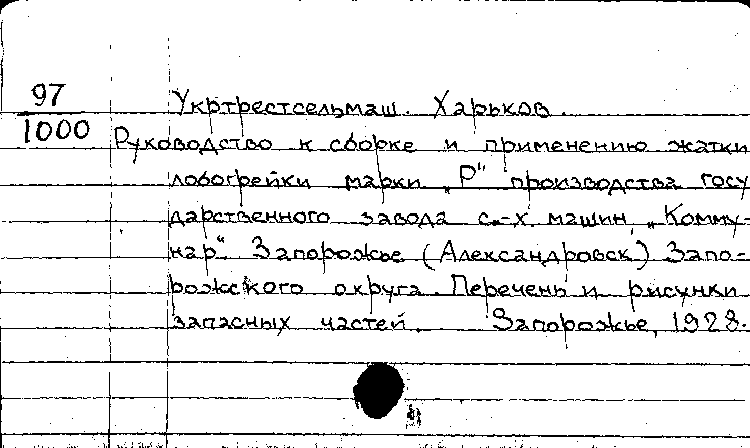 97
1000
Укртрестсельмаш. Харьков.
Руководство к сборке и применению жатки
лобогрейки марки „Р" производства госу
дарственного завода с.-х. машин „Комму-
нар". Запорожье (Александровск) Запо-
рожского округа. Перечень и рисунки
запасных частей. Запорожье, 1928.